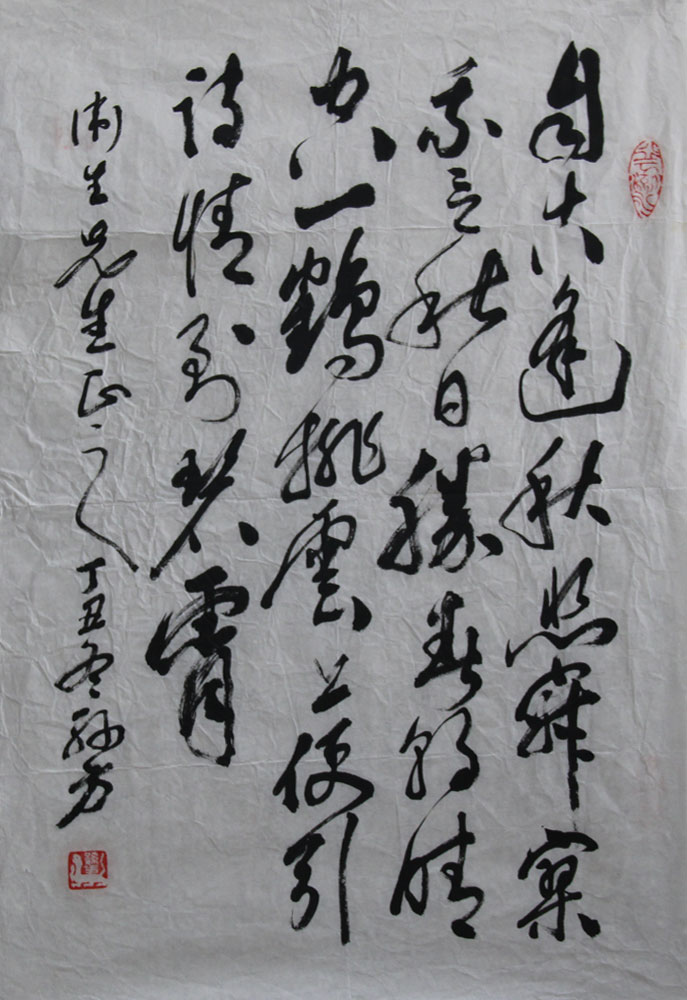 自古逢秋悲寂寥
我言秋日勝春朝晴
空一鶴排雲上便引
詩情到碧霄
生先生正之 丁丑冬